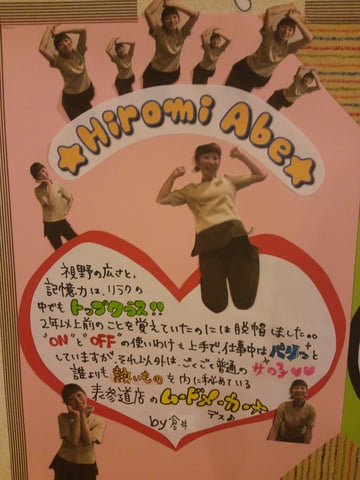 ★Hiromi Abe★
視野の広さと、
記憶力は、リラクの
中でもトップクラス!!
2年以上前のことを覚えていたのには脱帽しました。。
"ON"と"OFF"の使いわけも上手で、仕事中はバリッと
していますが、それ以外は、ごくごく普通の女の子♥♥
誰よりも熱いものを内に秘めている
表参道店のムードメーカー
デス♪
by 倉井